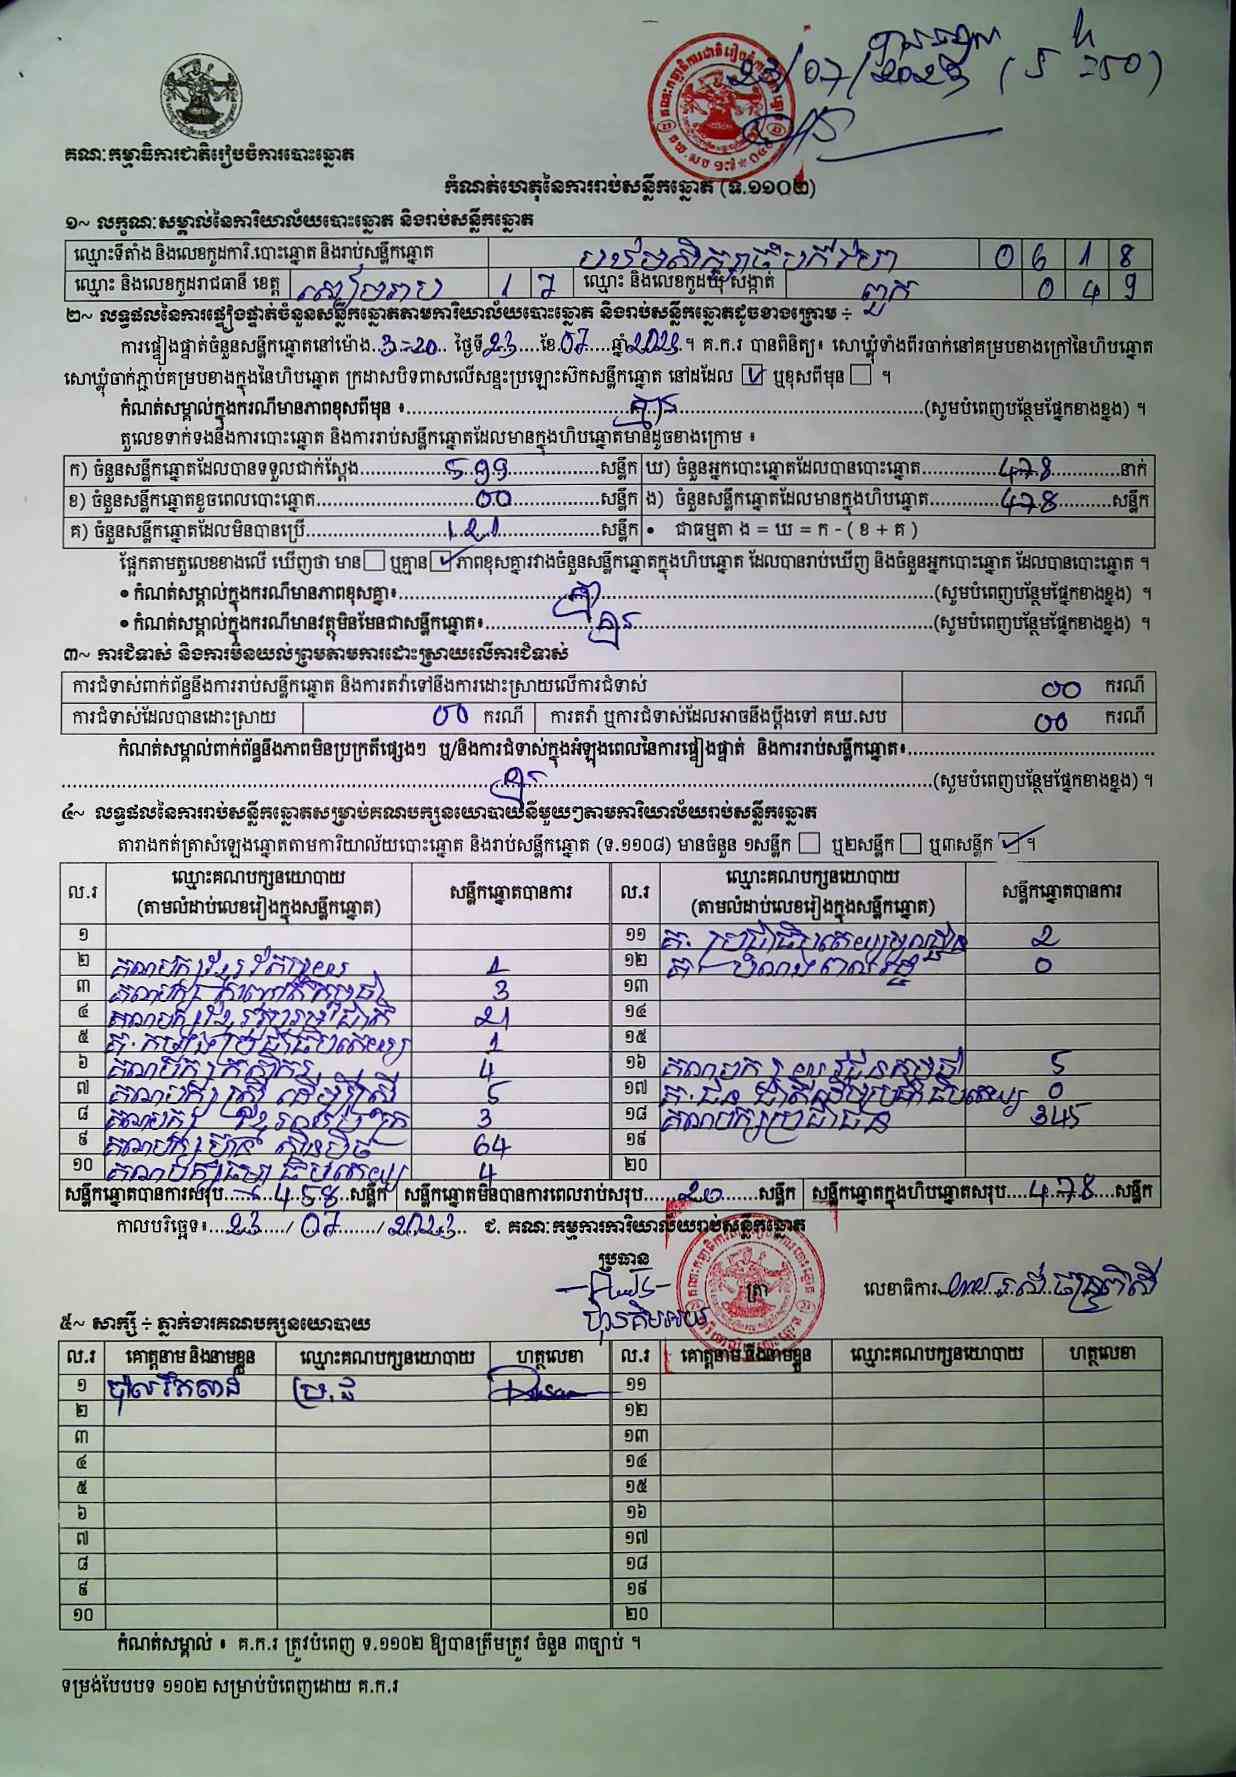 23/07/2023
គណៈកម្មាធិការជាតិរៀបចំការបោះឆ្នោត
កំណត់ហេតុនៃការរាប់សន្លឹកឆ្នោត (ទ.១១០២)
១~ លក្ខណៈសម្គាល់នៃការិយាល័យបោះឆ្នោត និងរាប់សន្លឹកឆ្នោត
ឈ្មោះទីតាំង និងលេខកូដការិ.បោះឆ្នោត និងរាប់សន្លឹកឆ្នោត 0 6 1 8
ឈ្មោះ និងលេខកូដរាជធានី ខេត្ត សៀមរាប 1 7 ឈ្មោះ និងលេខកូដឃុំ សង្កាត់ ពួក 0 4 9
២~ លទ្ធផលនៃការផ្ទៀងផ្ទាត់ចំនួនសន្លឹកឆ្នោតតាមការិយាល័យបោះឆ្នោត និងរាប់សន្លឹកឆ្នោតដូចខាងក្រោម ÷
ការផ្ទៀងផ្ទាត់ចំនួនសន្លឹកឆ្នោតនៅម៉ោង 3=20 ថ្ងៃទី 23 ខែ 07 ឆ្នាំ 2023 ។ គ.ក.រ បានពិនិត្យ៖ សោឃ្លុំទាំងពីរចាក់នៅគម្របខាងក្រៅនៃហិបឆ្នោត
សោឃ្លុំចាក់ភ្ជាប់គម្របខាងក្នុងនៃហិបឆ្នោត ក្រដាសបិទពាសលើសន្ទះប្រឡោះស៊កសន្លឹកឆ្នោត នៅដដែល ☑ ឬខុសពីមុន ☐ ។
កំណត់សម្គាល់ក្នុងករណីមានភាពខុសពីមុន ៖ គ្មាន (សូមបំពេញបន្ថែមផ្នែកខាងខ្នង) ។
តួលេខទាក់ទងនឹងការបោះឆ្នោត និងការរាប់សន្លឹកឆ្នោតដែលមានក្នុងហិបឆ្នោតមានដូចខាងក្រោម ៖
ក) ចំនួនសន្លឹកឆ្នោតដែលបានទទួលជាក់ស្ដែង 599 សន្លឹក ឃ) ចំនួនអ្នកបោះឆ្នោតដែលបានបោះឆ្នោត 478 នាក់
ខ) ចំនួនសន្លឹកឆ្នោតខូចពេលបោះឆ្នោត 00 សន្លឹក ង) ចំនួនសន្លឹកឆ្នោតដែលមានក្នុងហិបឆ្នោត 478 សន្លឹក
គ) ចំនួនសន្លឹកឆ្នោតដែលមិនបានប្រើ 121 សន្លឹក • ជាធម្មតា ង = ឃ = ក - ( ខ + គ )
ផ្អែកតាមតួលេខខាងលើ ឃើញថា មាន ☐ ឬគ្មាន ☑ ភាពខុសគ្នារវាងចំនួនសន្លឹកឆ្នោតក្នុងហិបឆ្នោត ដែលបានរាប់ឃើញ និងចំនួនអ្នកបោះឆ្នោត ដែលបានបោះឆ្នោត ។
• កំណត់សម្គាល់ក្នុងករណីមានភាពខុសគ្នា៖ គ្មាន (សូមបំពេញបន្ថែមផ្នែកខាងខ្នង) ។
• កំណត់សម្គាល់ក្នុងករណីមានវត្ថុមិនមែនជាសន្លឹកឆ្នោត៖ គ្មាន (សូមបំពេញបន្ថែមផ្នែកខាងខ្នង) ។
៣~ ការជំទាស់ និងការមិនយល់ព្រមតាមការដោះស្រាយលើការជំទាស់
ការជំទាស់ពាក់ព័ន្ធនឹងការរាប់សន្លឹកឆ្នោត និងការតវ៉ាទៅនឹងការដោះស្រាយលើការជំទាស់ 00 ករណី
ការជំទាស់ដែលបានដោះស្រាយ 00 ករណី ការតវ៉ា ឬការជំទាស់ដែលអាចនឹងប្ដឹងទៅ គឃ.សប 00 ករណី
កំណត់សម្គាល់ពាក់ព័ន្ធនឹងភាពមិនប្រក្រតីផ្សេងៗ ឬ/និងការជំទាស់ក្នុងអំឡុងពេលនៃការផ្ទៀងផ្ទាត់ និងការរាប់សន្លឹកឆ្នោត៖
គ្មាន (សូមបំពេញបន្ថែមផ្នែកខាងខ្នង) ។
៤~ លទ្ធផលនៃការរាប់សន្លឹកឆ្នោតសម្រាប់គណបក្សនយោបាយនីមួយៗតាមការិយាល័យរាប់សន្លឹកឆ្នោត
តារាងកត់ត្រាសំឡេងឆ្នោតតាមការិយាល័យបោះឆ្នោត និងរាប់សន្លឹកឆ្នោត (ទ.១១០៨) មានចំនួន ១សន្លឹក ☐ ឬ២សន្លឹក ☐ ឬ៣សន្លឹក ☑ ។
ល.រ ឈ្មោះគណបក្សនយោបាយ (តាមលំដាប់លេខរៀងក្នុងសន្លឹកឆ្នោត) សន្លឹកឆ្នោតបានការ ល.រ ឈ្មោះគណបក្សនយោបាយ (តាមលំដាប់លេខរៀងក្នុងសន្លឹកឆ្នោត) សន្លឹកឆ្នោតបានការ
១ ១១ គ. ប្រជាធិបតេយ្យមូលដ្ឋាន 2
២ គណបក្សខ្មែររីកចម្រើន 1 ១២ 0
៣ គណបក្ស 3 ១៣
៤ គណបក្សខ្មែររួបរួមជាតិ 21 ១៤
៥ គ. កម្លាំងប្រជាធិបតេយ្យ 1 ១៥
៦ គណបក្សកសិករ 4 ១៦ គណបក្សយុវជនកម្ពុជា 5
៧ គណបក្សស្ត្រីដើម្បីស្ត្រី 5 ១៧ គ. ជនជាតិដើមប្រជាធិបតេយ្យ 0
៨ គណបក្សខ្មែរ 3 ១៨ គណបក្សប្រជាជន 345
៩ គណបក្សហ្វ៊ុនស៊ិនប៉ិច 64 ១៩
១០ គណបក្សធម្មាធិបតេយ្យ 4 ២០
សន្លឹកឆ្នោតបានការសរុប 458 សន្លឹក សន្លឹកឆ្នោតមិនបានការពេលរាប់សរុប 20 សន្លឹក សន្លឹកឆ្នោតក្នុងហិបឆ្នោតសរុប 478 សន្លឹក
កាលបរិច្ឆេទ៖ 23 / 07 / 2023 ជ. គណៈកម្មការការិយាល័យរាប់សន្លឹកឆ្នោត
ប្រធាន
ត្រា លេខាធិការ
៥~ សាក្សី ÷ ភ្នាក់ងារគណបក្សនយោបាយ
ល.រ គោត្តនាម និងនាមខ្លួន ឈ្មោះគណបក្សនយោបាយ ហត្ថលេខា ល.រ គោត្តនាម និងនាមខ្លួន ឈ្មោះគណបក្សនយោបាយ ហត្ថលេខា
១ ប្រ.ជ ១១
២ ១២
៣ ១៣
៤ ១៤
៥ ១៥
៦ ១៦
៧ ១៧
៨ ១៨
៩ ១៩
១០ ២០
កំណត់សម្គាល់ ៖ គ.ក.រ ត្រូវបំពេញ ទ.១១០២ ឱ្យបានត្រឹមត្រូវ ចំនួន ៣ច្បាប់ ។
ទម្រង់បែបបទ ១១០២ សម្រាប់បំពេញដោយ គ.ក.រ